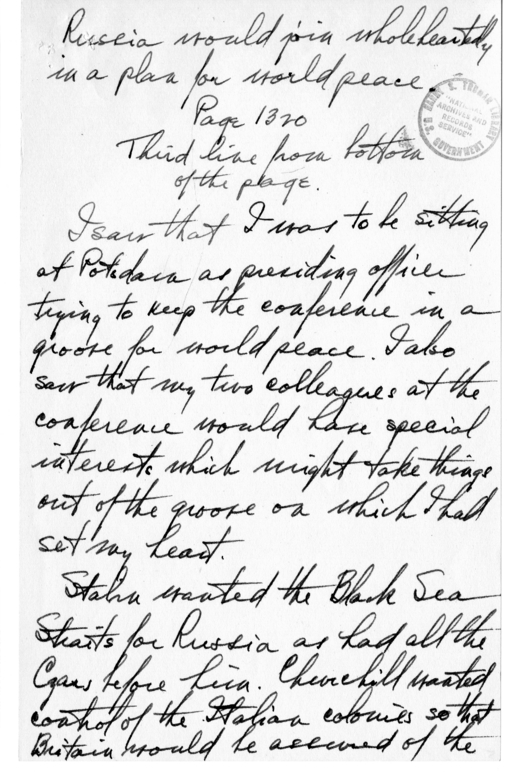 Russia would join wholeheartedly
in a plan for world peace.
HARRY S. TRUMAN LIBRARY
"NATIONAL
ARCHIVES AND
RECORDS
SERVICE"
U.S. GOVERNMENT
Page 1320
Third line from bottom
of the page.
I saw that I was to be sitting
at Potsdam as presiding officer
trying to keep the conference in a
groove for world peace. I also
saw that my two colleagues at the
conference would have special
interests which might take things
out of the groove on which I had
set my heart.
Stalin wanted the Black Sea
Straits for Russia as had all the
Czars before him. Churchill wanted
control of the Italian colonies so that
Britain would be assured of the